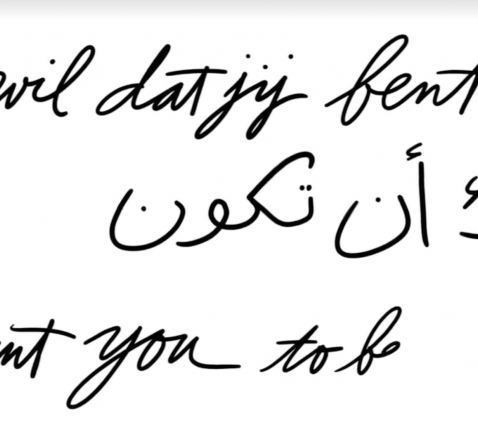 wil dat jij bent
أن تكون
you to be